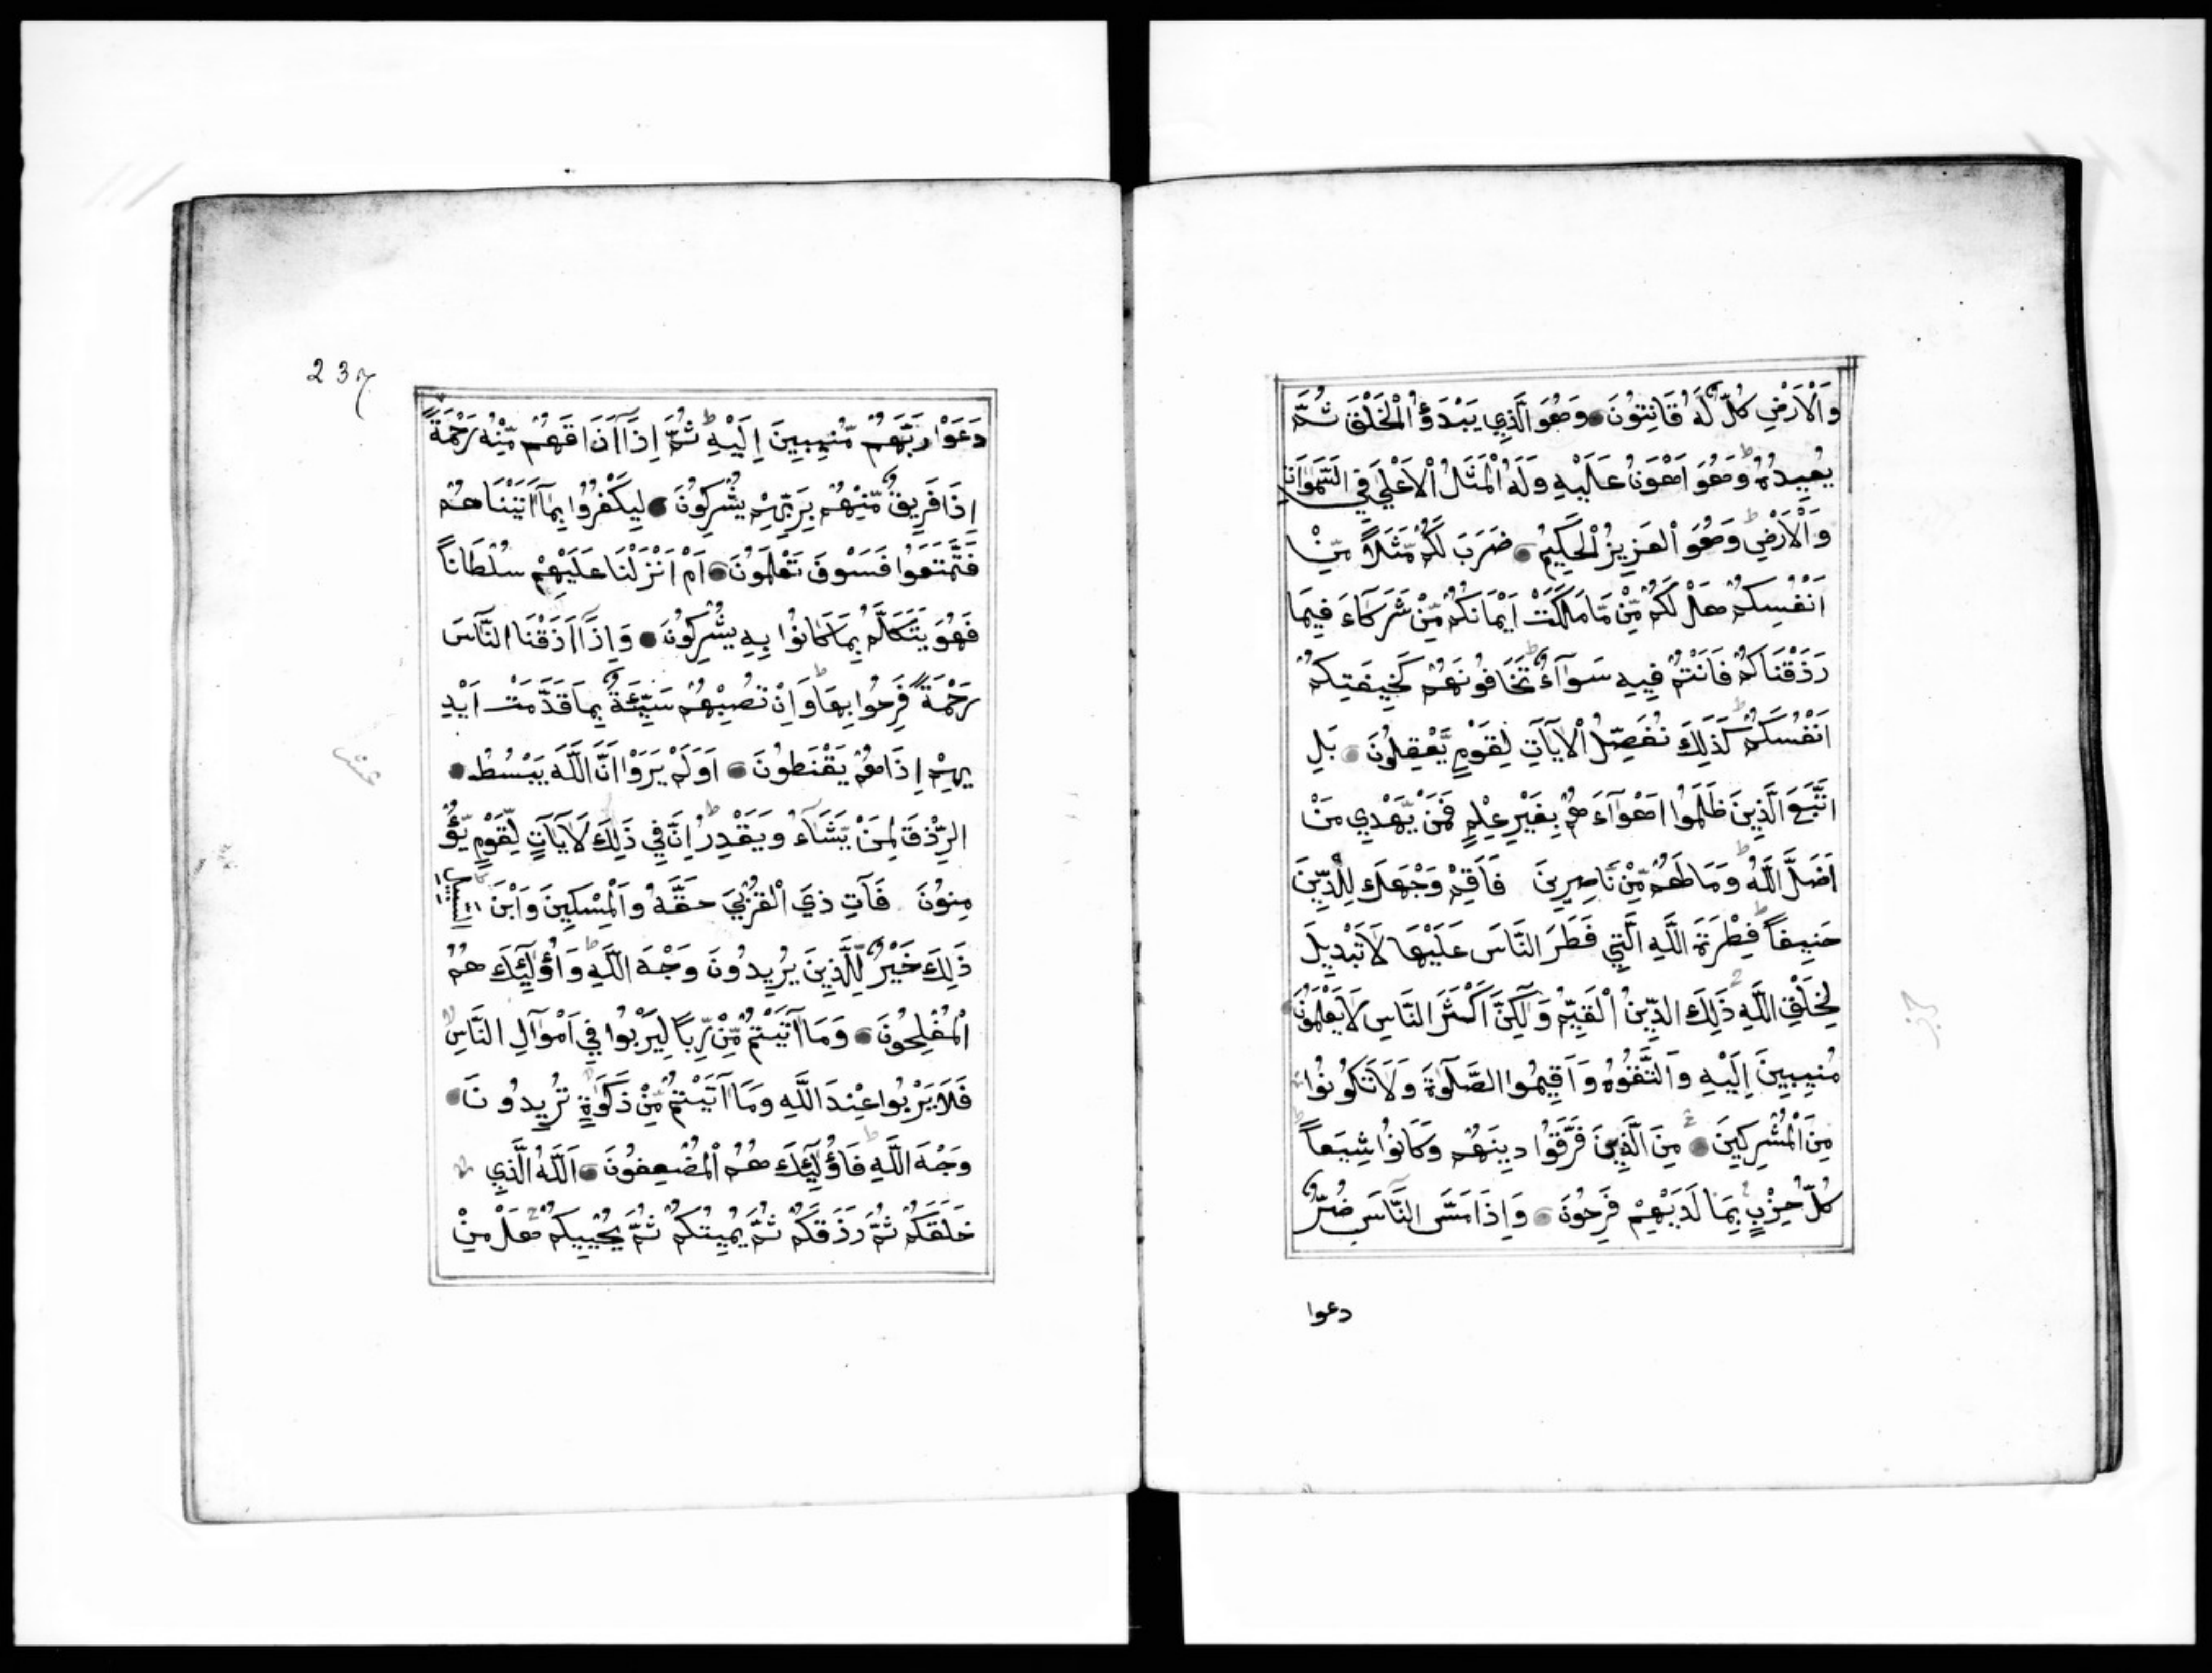 وَالْاَرْضِ كُلٌّ لَهُ قَانِتُونَ وَهُوَ الَّذِي يَبْدَؤُ الْخَلْقَ ثُمَّ
يُعِيدُهُ وَهُوَ اَهْوَنُ عَلَيْهِ وَلَهُ الْمَثَلُ الْاَعْلَى فِي السَّمٰوَاتِ
وَالْاَرْضِ وَهُوَ الْعَزِيزُ الْحَكِيمُ ضَرَبَ لَكُمْ مَّثَلًا مِّنْ
اَنْفُسِكُمْ هَلْ لَكُمْ مِّنْ مَّا مَلَكَتْ اَيْمَانُكُمْ مِّنْ شُرَكَآءَ فِيمَا
رَزَقْنَاكُمْ فَاَنْتُمْ فِيهِ سَوَآءٌ تَخَافُونَهُمْ كَخِيفَتِكُمْ
اَنْفُسَكُمْ كَذٰلِكَ نُفَصِّلُ الْاٰيَاتِ لِقَوْمٍ يَّعْقِلُونَ بَلِ
اتَّبَعَ الَّذِينَ ظَلَمُوا اَهْوَآءَهُمْ بِغَيْرِ عِلْمٍ فَمَنْ يَّهْدِي مَنْ
اَضَلَّ اللّٰهُ وَمَا لَهُمْ مِّنْ نَّاصِرِينَ فَاَقِمْ وَجْهَكَ لِلدِّينِ
حَنِيفًا فِطْرَةَ اللّٰهِ الَّتِي فَطَرَ النَّاسَ عَلَيْهَا لَا تَبْدِيلَ
لِخَلْقِ اللّٰهِ ذٰلِكَ الدِّينُ الْقَيِّمُ وَلٰكِنَّ اَكْثَرَ النَّاسِ لَا يَعْلَمُونَ
مُنِيبِينَ اِلَيْهِ وَاتَّقُوهُ وَاَقِيمُوا الصَّلٰوةَ وَلَا تَكُونُوا
مِنَ الْمُشْرِكِينَ مِنَ الَّذِينَ فَرَّقُوا دِينَهُمْ وَكَانُوا شِيَعًا
كُلُّ حِزْبٍ بِمَا لَدَيْهِمْ فَرِحُونَ وَاِذَا مَسَّ النَّاسَ ضُرٌّ
دعوا
237
دَعَوْا رَبَّهُمْ مُّنِيبِينَ اِلَيْهِ ثُمَّ اِذَآ اَذَاقَهُمْ مِّنْهُ رَحْمَةً
اِذَا فَرِيقٌ مِّنْهُمْ بِرَبِّهِمْ يُشْرِكُونَ لِيَكْفُرُوا بِمَآ اٰتَيْنَاهُمْ
فَتَمَتَّعُوا فَسَوْفَ تَعْلَمُونَ اَمْ اَنْزَلْنَا عَلَيْهِمْ سُلْطَانًا
فَهُوَ يَتَكَلَّمُ بِمَا كَانُوا بِهِ يُشْرِكُونَ وَاِذَآ اَذَقْنَا النَّاسَ
رَحْمَةً فَرِحُوا بِهَا وَاِنْ تُصِبْهُمْ سَيِّئَةٌ بِمَا قَدَّمَتْ اَيْدِ
يهِمْ اِذَا هُمْ يَقْنَطُونَ اَوَلَمْ يَرَوْا اَنَّ اللّٰهَ يَبْسُطُ
الرِّزْقَ لِمَنْ يَّشَآءُ وَيَقْدِرُ اِنَّ فِي ذٰلِكَ لَاٰيَاتٍ لِّقَوْمٍ يُّؤْ
مِنُونَ فَاٰتِ ذِي الْقُرْبٰى حَقَّهُ وَالْمِسْكِينَ وَابْنَ السَّبِيلِ
ذٰلِكَ خَيْرٌ لِّلَّذِينَ يُرِيدُونَ وَجْهَ اللّٰهِ وَاُولٰٓئِكَ هُمُ
الْمُفْلِحُونَ وَمَآ اٰتَيْتُمْ مِّنْ رِّبًا لِيَرْبُوا فِي اَمْوَالِ النَّاسِ
فَلَا يَرْبُوا عِنْدَ اللّٰهِ وَمَآ اٰتَيْتُمْ مِّنْ زَكٰوةٍ تُرِيدُونَ
وَجْهَ اللّٰهِ فَاُولٰٓئِكَ هُمُ الْمُضْعِفُونَ اَللّٰهُ الَّذِي
خَلَقَكُمْ ثُمَّ رَزَقَكُمْ ثُمَّ يُمِيتُكُمْ ثُمَّ يُحْيِيكُمْ هَلْ مِنْ
عشر